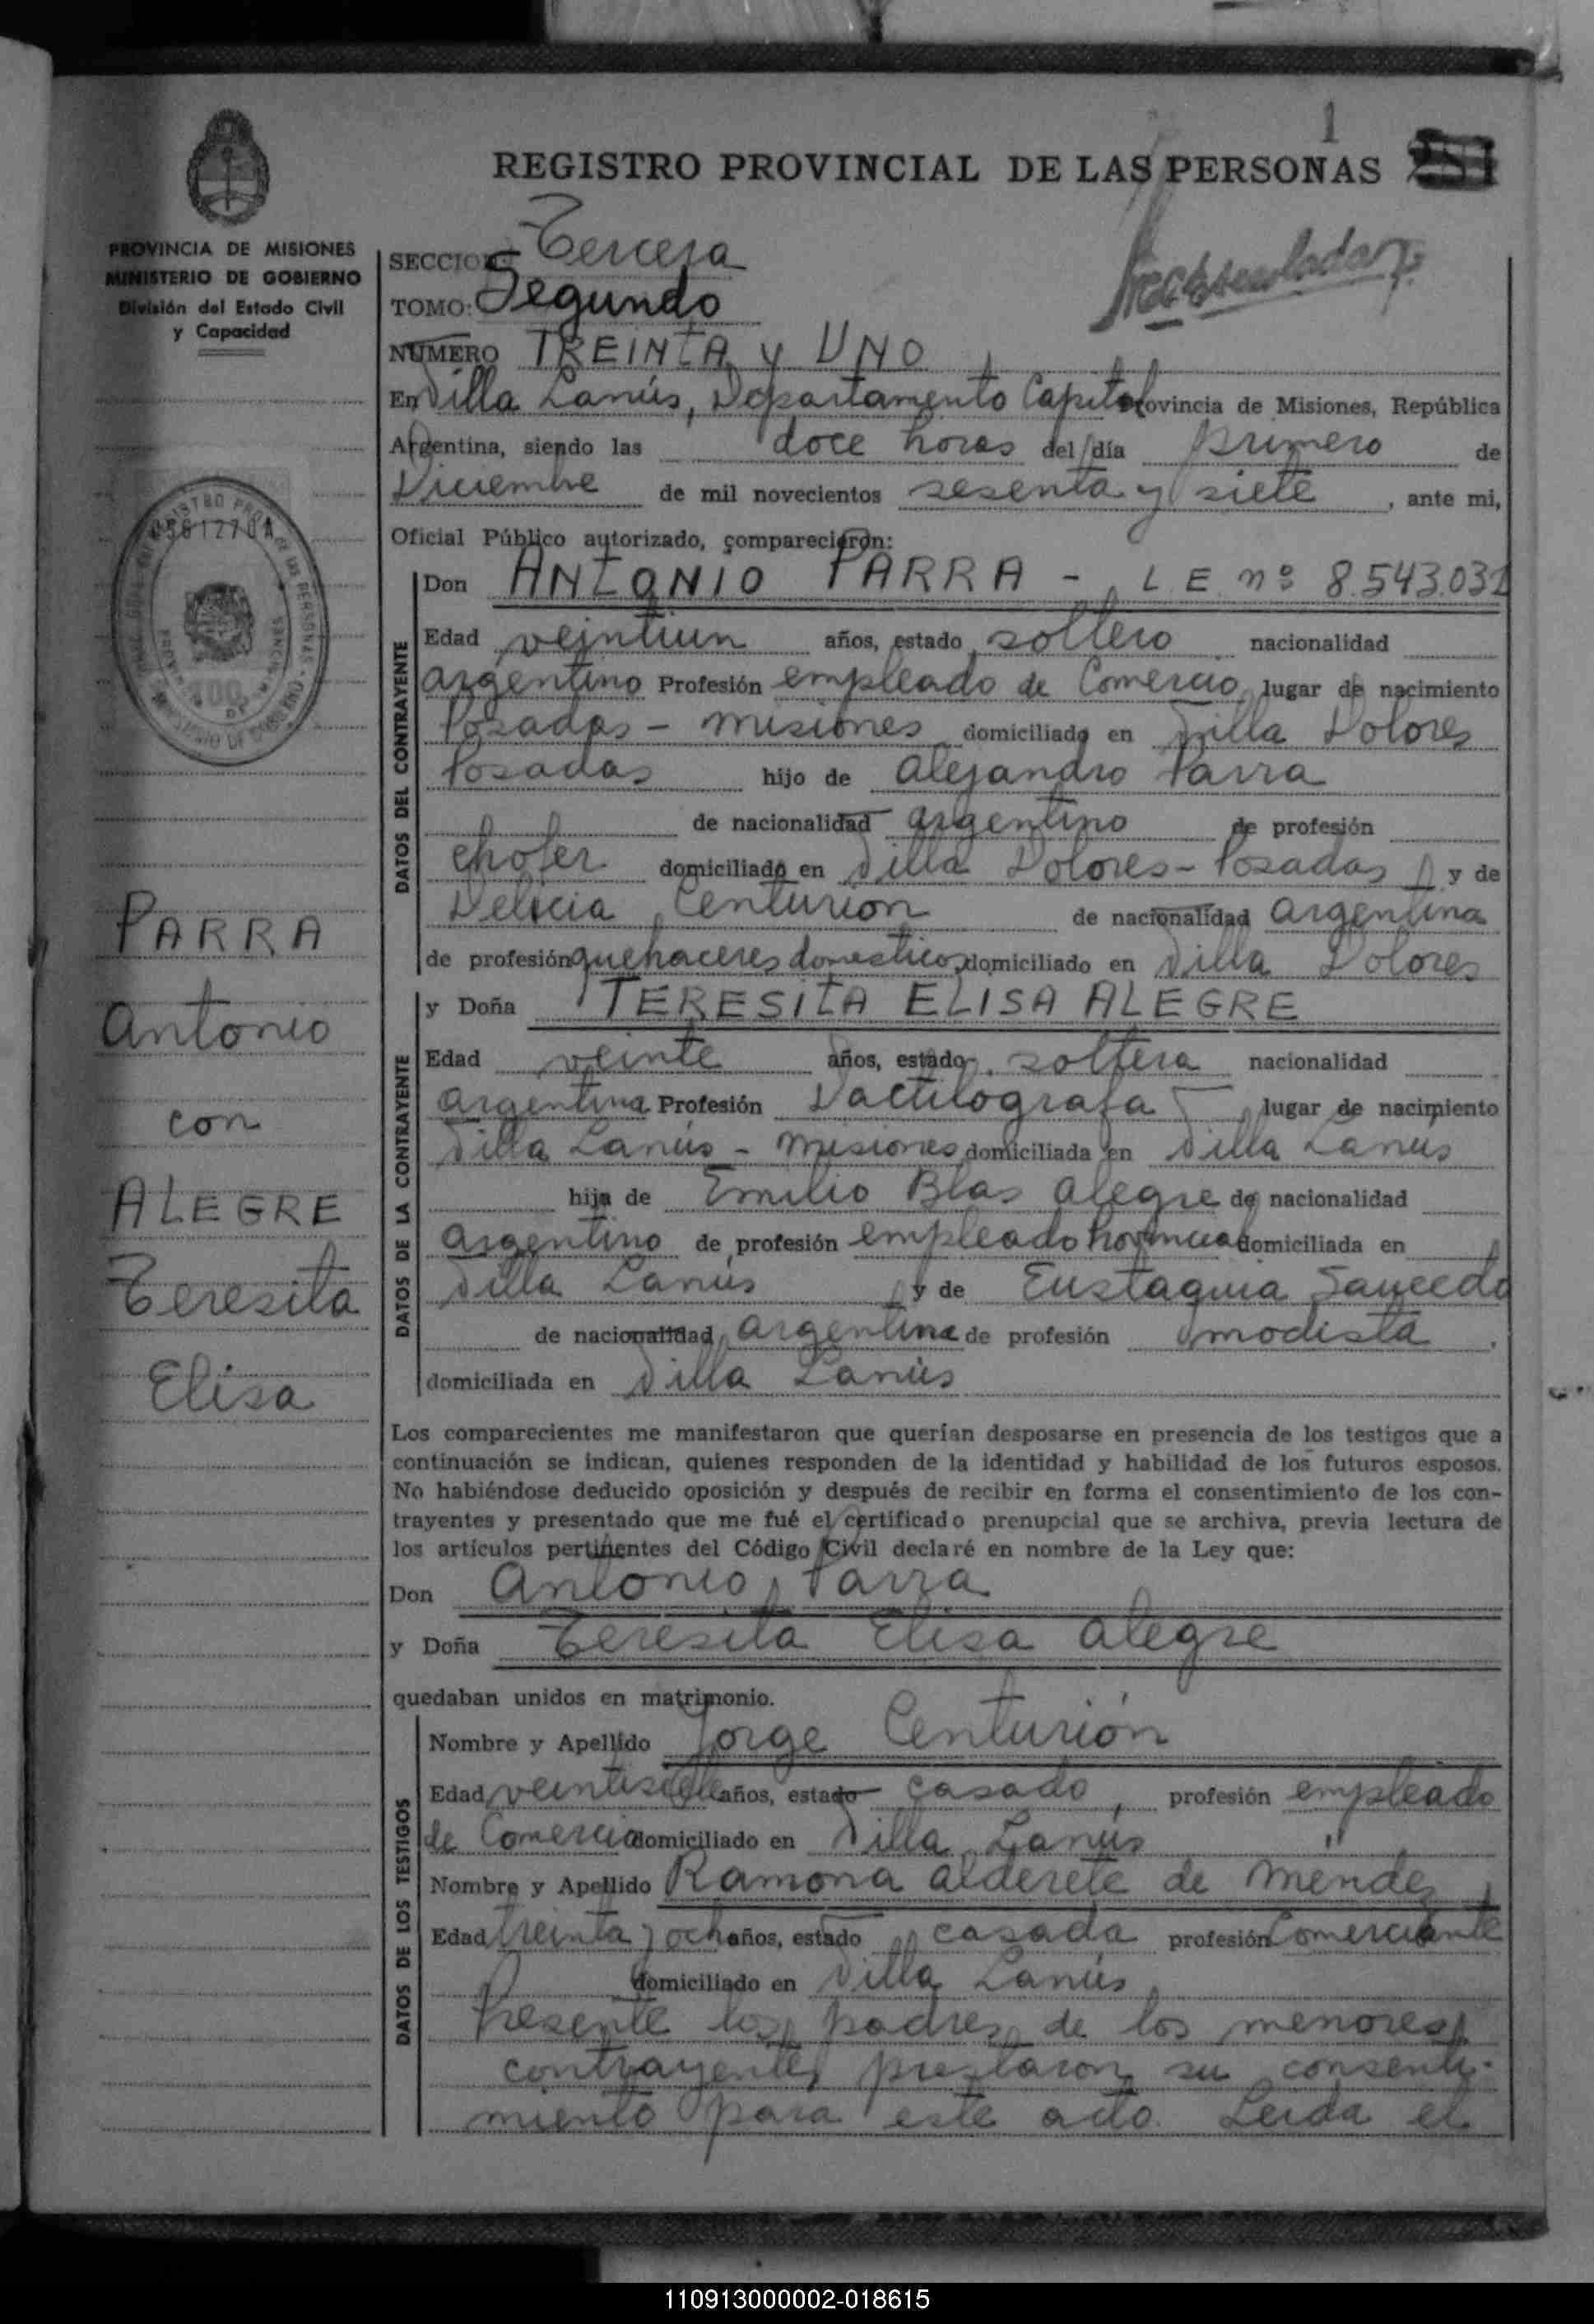 1
REGISTRO PROVINCIAL DE LAS PERSONAS
PROVINCIA DE MISIONES
MINISTERIO DE GOBIERNO
División del Estado Civil
y Capacidad
SECCION: Tercera
TOMO: Segundo
NUMERO TREINTA y UNO
En Villa Lanús, Departamento Capital Provincia de Misiones, República
Argentina, siendo las doce horas del día primero de
Diciembre de mil novecientos sesenta y siete, ante mi,
Oficial Público autorizado, comparecieron:
DATOS DEL CONTRAYENTE
Don ANTONIO PARRA - L E nº 8.543.031
Edad veintiun años, estado soltero nacionalidad
argentino Profesión empleado de Comercio lugar de nacimiento
Posadas - Misiones domiciliado en Villa Dolores
Posadas hijo de Alejandro Parra
de nacionalidad argentino de profesión
chofer domiciliado en Villa Dolores - Posadas y de
Delicia Centurion de nacionalidad argentina
de profesión quehaceres domesticos domiciliado en Villa Dolores
DATOS DE LA CONTRAYENTE
y Doña TERESITA ELISA ALEGRE
Edad veinte años, estado soltera nacionalidad
argentina Profesión Dactilografa lugar de nacimiento
Villa Lanús - Misiones domiciliada en Villa Lanus
hija de Emilio Blas Alegre de nacionalidad
argentino de profesión empleado domiciliada en
Villa Lanús y de Eustaquia Saucedo
de nacionalidad argentina de profesión modista
domiciliada en Villa Lanús
0561270A
100
PARRA
Antonio
con
ALEGRE
Teresita
Elisa
Los comparecientes me manifestaron que querían desposarse en presencia de los testigos que a
continuación se indican, quienes responden de la identidad y habilidad de los futuros esposos.
No habiéndose deducido oposición y después de recibir en forma el consentimiento de los con-
trayentes y presentado que me fué el certificado prenupcial que se archiva, previa lectura de
los artículos pertinentes del Código Civil declaré en nombre de la Ley que:
Don Antonio Parra
y Doña Teresita Elisa Alegre
quedaban unidos en matrimonio.
DATOS DE LOS TESTIGOS
Nombre y Apellido Jorge Centurión
Edad años, estado casado, profesión empleado
de Comercio domiciliado en Villa Lanús "
Nombre y Apellido Ramona Alderete de Mendez
Edad treinta y ocho años, estado casada profesión Comerciante
domiciliado en Villa Lanús
Presente los padres de los menores
contrayentes prestaron su consenti-
miento para este acto. Leida el
110913000002-018615